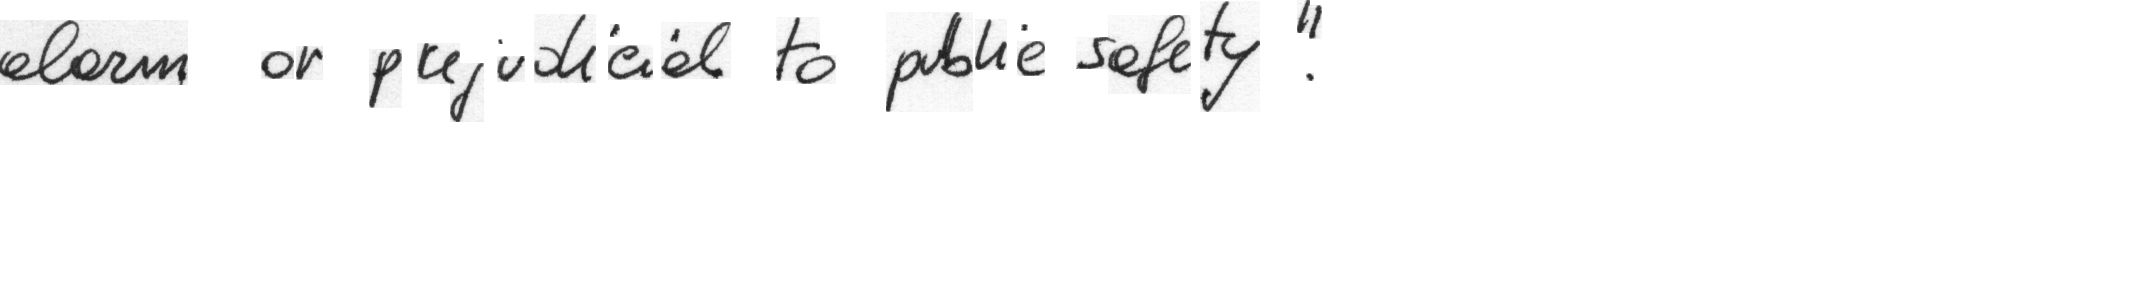 alarm or prejudicial to public safety".